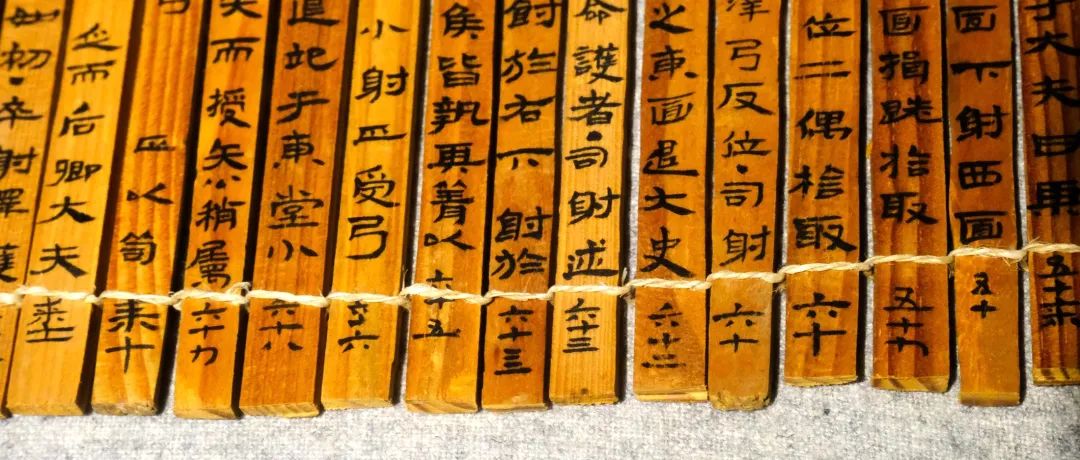 于大夫曰再 五十柒
面下射西面 五十
面揖 拾取 五十九
位二偶拾取 六十
弓反位·司射 六十
之東面退大史 六十二
命護者·司射述 六十三
射於右下射於 六十三
侯皆執 以 六十五
小射正受弓 六十六
退 于東堂小 六十八
矢而授矢公稍屬 六十九
弓 正以笥 柒十
之而后卿大夫 柒十一
如初·卒射釋護